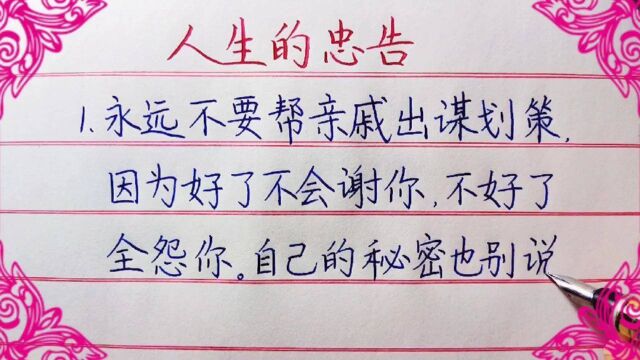 人生的忠告
1.永远不要帮亲戚出谋划策,
因为好了不会谢你,不好了
全怨你。自己的秘密也别说